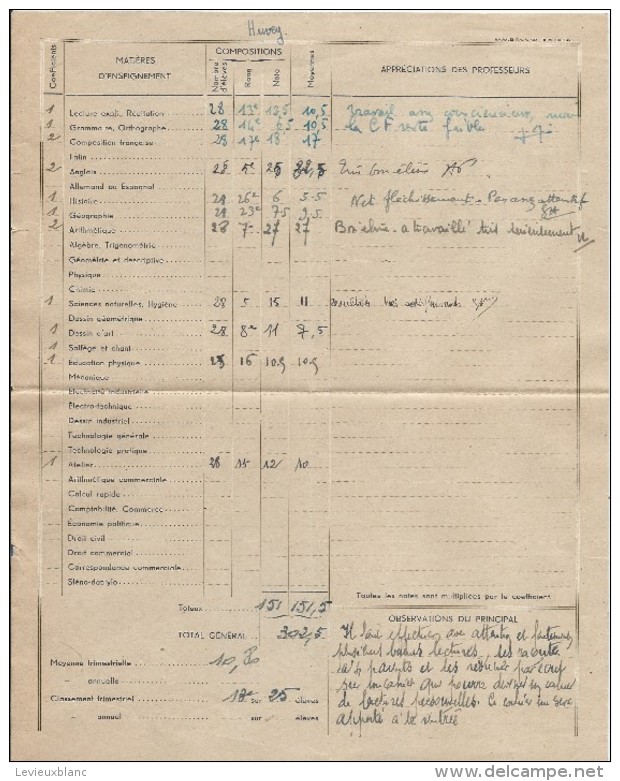 Huvey
Coefficients MATIÈRES D'ENSEIGNEMENT COMPOSITIONS Nombre d'élèves Rang Note Moyennes APPRÉCIATIONS DES PROFESSEURS
1 Lecture expl., Récitation 28 13e 13,5 10,5 Travail consciencieux, mais
1 Grammaire, Orthographe 28 14e 6,5 10,5 la C F reste faible
2 Composition française 28 17e 18 17
Latin
2 Anglais 28 5e 25 28,5 Très bon élève
Allemand ou Espagnol
1 Histoire 28 26e 6 5.5 Net fléchissement - Pas assez attentif
1 Géographie 28 23e 7.5 9.5
2 Arithmétique 28 7e 27 27 Bon élève - a travaillé très sérieusement
Algèbre, Trigonométrie
Géométrie et descriptive
Physique
Chimie
1 Sciences naturelles, Hygiène 28 5 15 11
Dessin géométrique
1 Dessin d'art 28 8e 11 7,5
1 Solfège et chant
1 Éducation physique 25 16 10.5 10.5
Mécanique
Électricité industrielle
Électro-technique
Dessin industriel
Technologie générale
Technologie pratique
1 Atelier 28 15 12 10
Arithmétique commerciale
Calcul rapide
Comptabilité, Commerce
Économie politique
Droit civil
Droit commercial
Correspondance commerciale
Sténo-dactylo
Toutes les notes sont multipliées par le coefficient
Totaux 151 151,5
TOTAL GÉNÉRAL 302,5
Moyenne trimestrielle 10,80
— annuelle
Classement trimestriel 13e sur 25 élèves
— annuel sur élèves
OBSERVATIONS DU PRINCIPAL
Il faut effectuer avec attention et
plusieurs bonnes lectures, les raconter
à ses parents et les résumer
sur un cahier qui pourra devenir un cahier
de lectures personnelles. Ce cahier sera
apporté à la rentrée
Levieuxblanc
delcampe.net